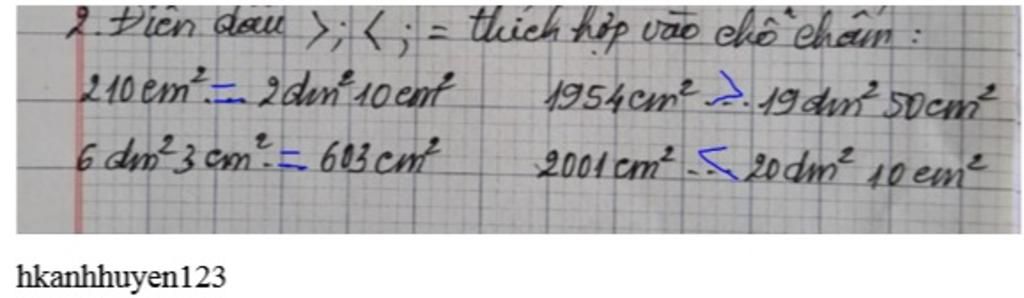 2. Điền dấu >; <; = thích hợp vào chỗ chấm:
210 cm² = 2dm² 10 cm² 1954 cm² > 19 dm² 50 cm²
6 dm² 3 cm² = 603 cm² 2001 cm² < 20 dm² 10 cm²
hkanhhuyen123